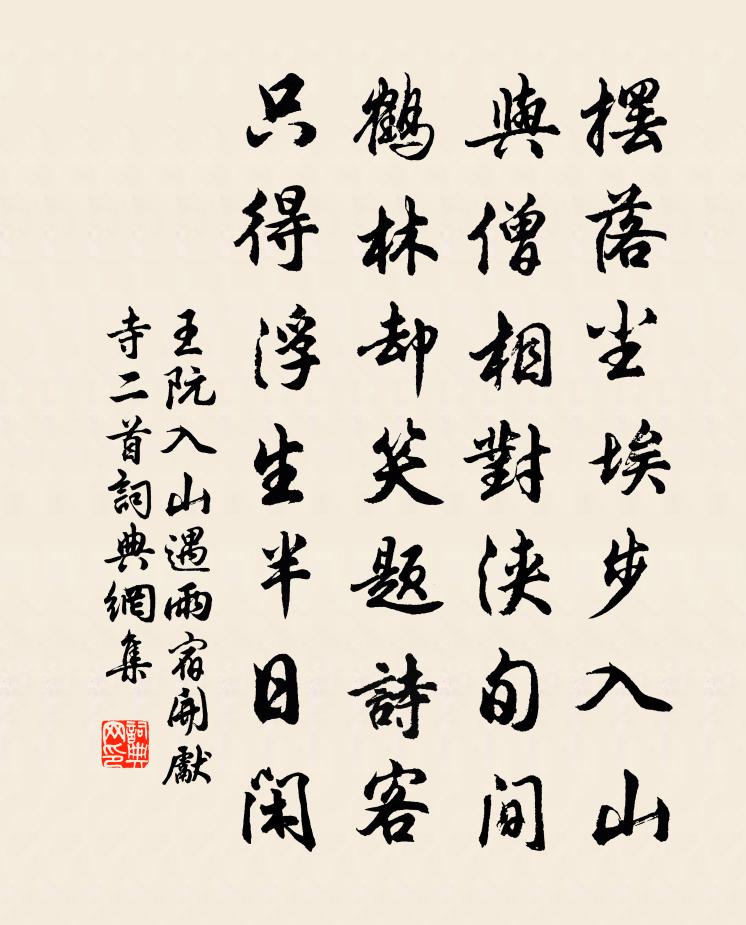 擺落尘埃步入山
與僧相對浹旬間
鶴林却笑題詩客
只得浮生半日閑
王阮入山遇雨宿開獻
寺二首詞典網集
詞典
网印